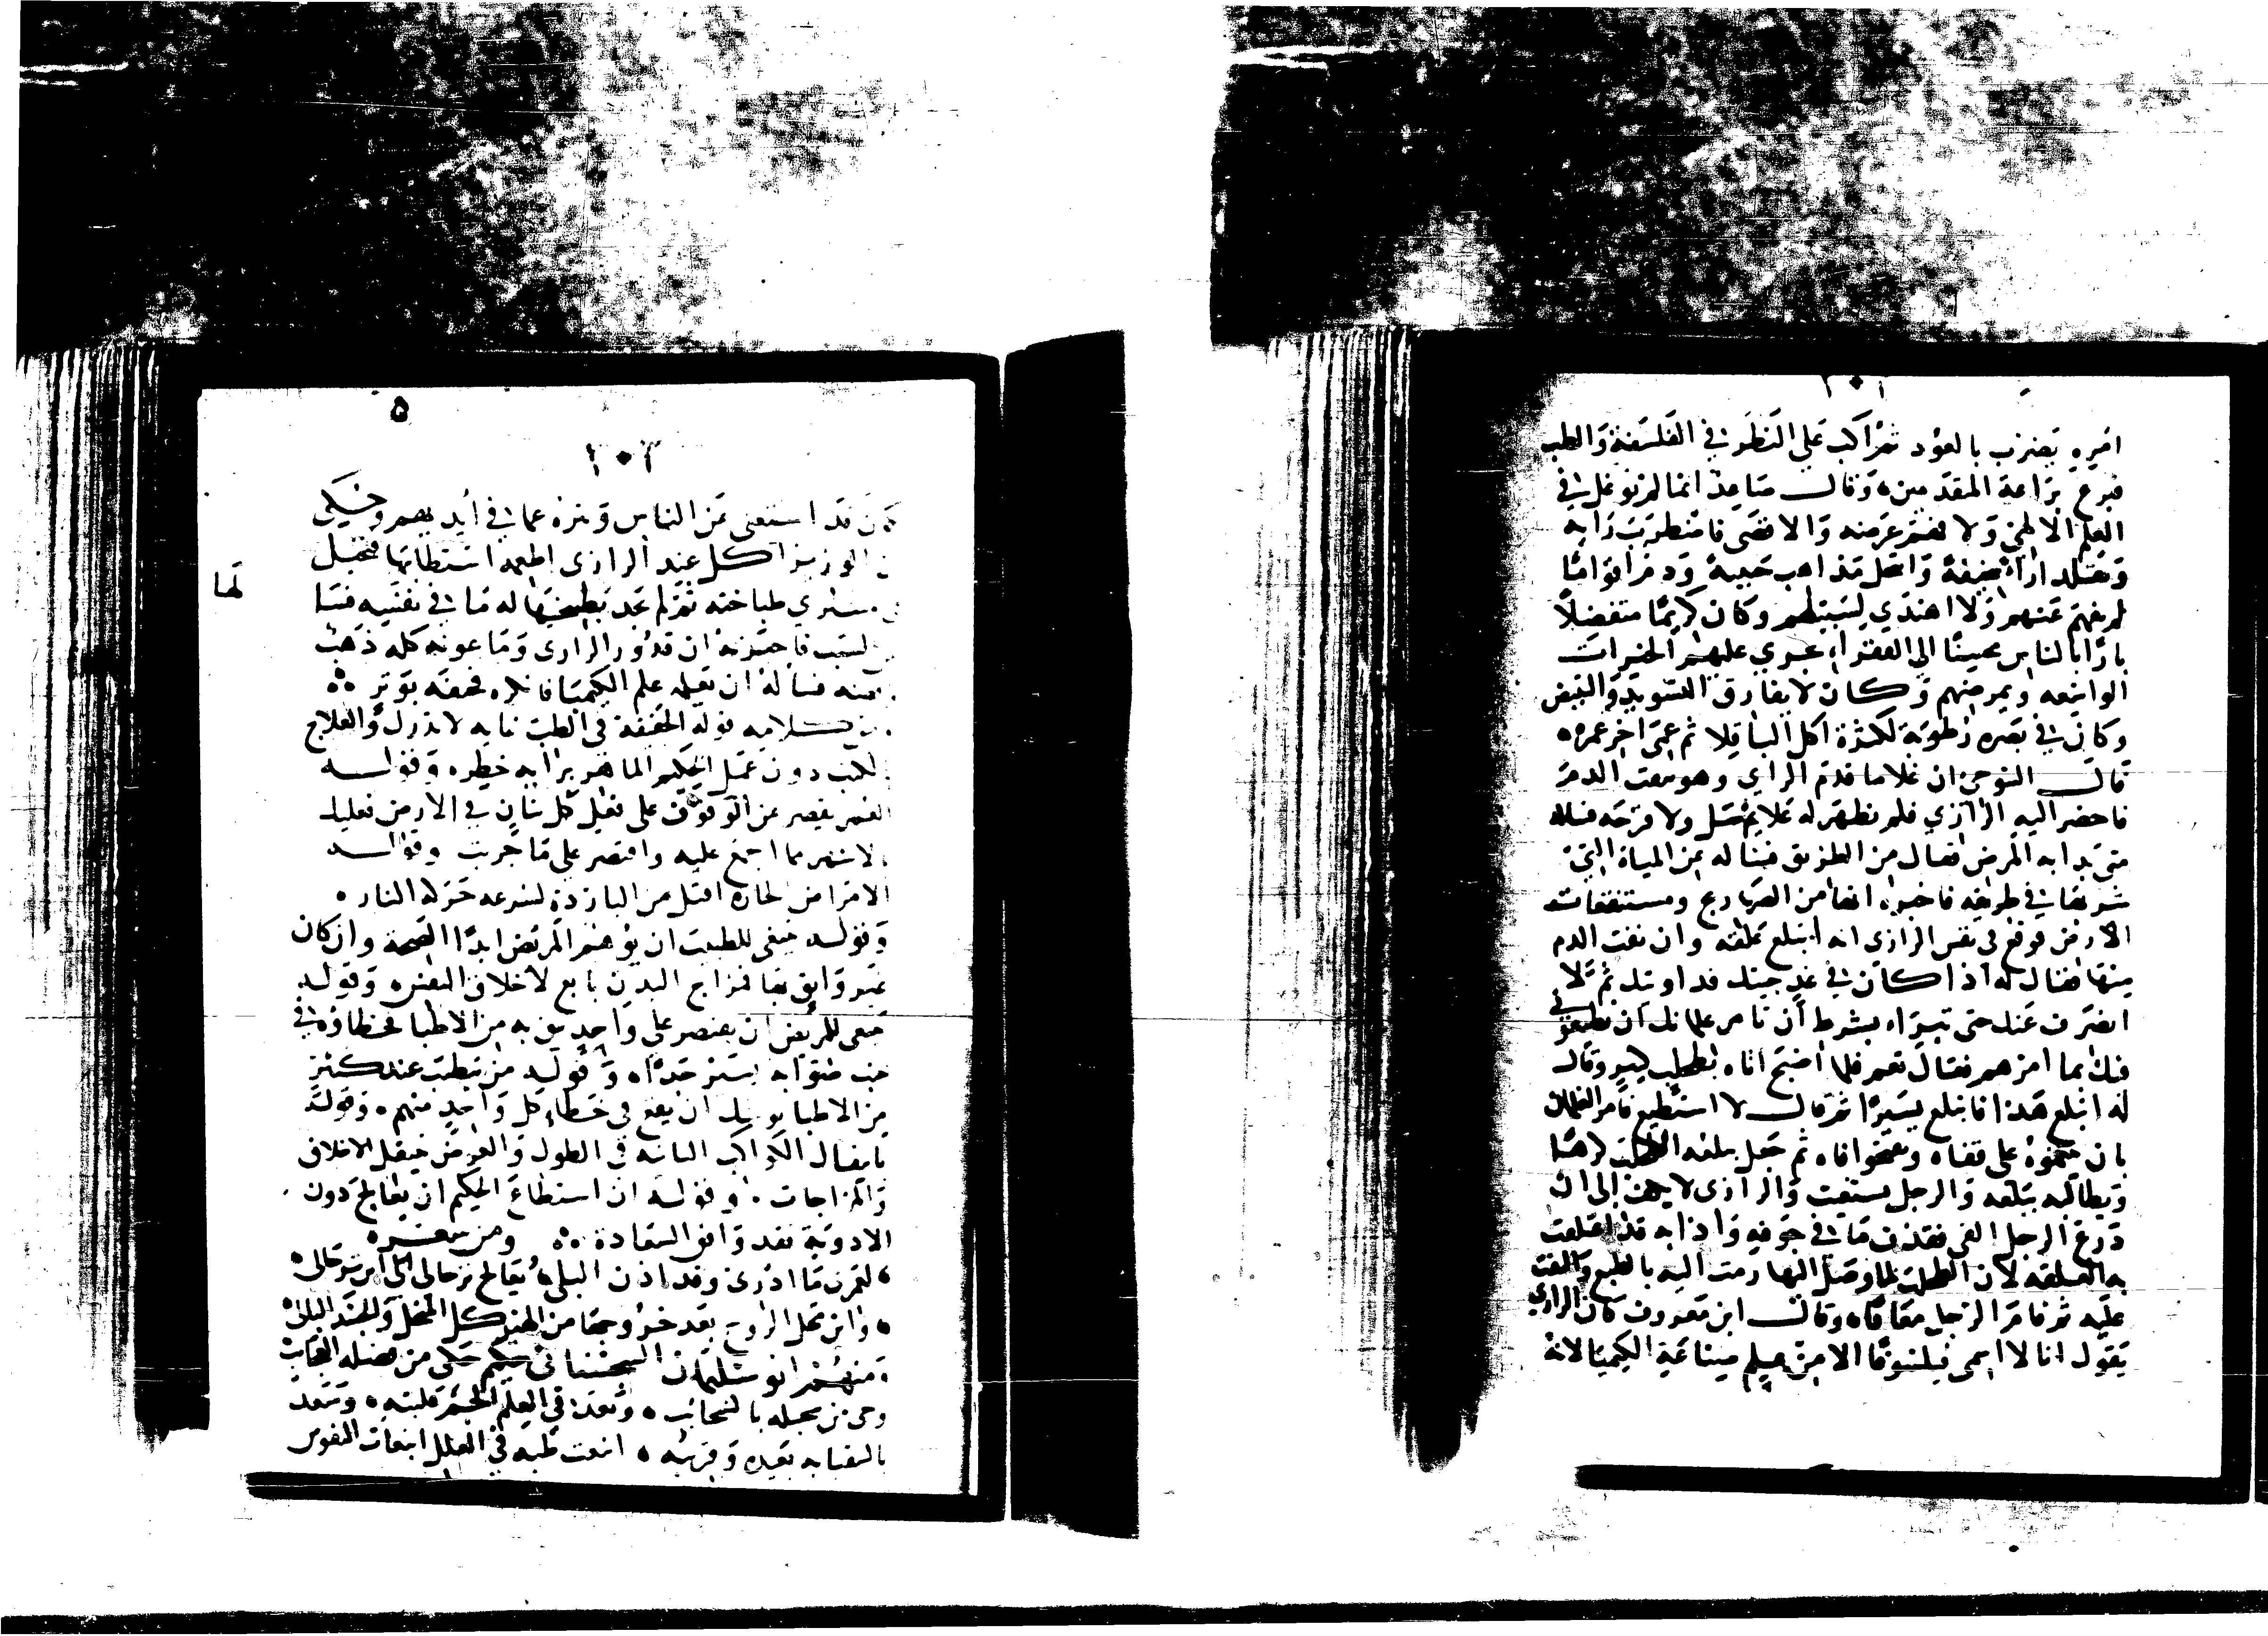 امره يضرب بالعود ثم اكب على النظر في الفلسفة والطب
فبرع براعة المتقدمين وقال صاعد انما لم يوغل في
العلم الالهي ولا فهم غرضه الاقصى فاضطرب رايه
وتقلد ارآء سخيفة وانتحل مذاهب خبيثة وذم اقواما
لم يفهم عنهم ولا اهتدي لسبيلهم وكان كريما متفضلا
بارا بالناس محسنا الى الفقرا يجري عليهم الجرايات
الواسعه ويمرضهم وكان لا يفارق التسويد والتبيض
وكان في بصره رطوبة لكثرة اكل الباقلا ثم عمى اخر عمره
قال التنوخي ان غلاما قدم الراي وهو ينفث الدم
فاحضر اليه الرازي فلم يظهر له علايم سل ولا قرحه فساله
متى بدا به المرض فقال من الطريق فساله عن المياة التي
شربها في طريقه فاخبره انها من الصهاريج ومستنقعات
الارض فوقع في نفس الرازى انه ابتلع علقه وان نفث الدم
منها فقال له اذا كان في غد جيتك فداويتك ثم لا
انصرف عنك حتى تبراء بشرط ان تامر غلمانك ان يطيعوني
فيك بما امرهم فقال نعم فلما اصبح اتاه بطحلب كبير وقال
له ابتلع هذا فابتلع يسيرا ثم قال لا استطيع فامر الغلمان
بان ينيموه على قفاه وفتحوا فاه ثم جعل يلقمه الطحلب كرها
ويطالبه ببلعه والرجل يستغيث والرازى لا يكف الى ان
ذرع الرجل القى فقذف ما في جوفه واذا به قد اقتلعت
به العلقه لان الطحلب لما وصل اليها رمت اليه بالطبع والتفت
عليه ثم قام الرجل معافا وقال ابن معروف كان الرازي
يقول انا لا اسمى فيلسوفا الا من علم صناعة الكيميا لانه
١٠٣
كان قد استغنى عن الناس وتنزه عما في أيديهم وحكي
ان الوزير اكل عند الرازى اطعمة استطابها فتحيل
في مشتري طباخته ثم لم تجد بطبخها له ما في نفسه فسا
لها
عن السبب فاخبرته ان قدور الرازى وماعونه كله ذهب
وفضه فساله ان يعلمه علم الكيميا فانكره فخنقه بوتر
ومن كلامه قوله الحقيقة في الطب غايه لا تدرك والعلاج
بالكتب دون عمل الحكيم الماهر برايه خطر وقوله
العمر يقصر عن الوقوف على فعل كل نبات في الارض فعليك
بالاشهر مما اجمع عليه واقتصر على ما جربت وقوله
الامراض الحارة اقتل من الباردة لسرعه حركة النار
وقوله ينبغي للطبيب ان يوهم المريض ابدا الصحة وان كان
غير واثق بها فمزاج البدن تابع لاخلاق النفس وقوله
ينبغي للمريض ان يقتصر على واحد يثق به من الاطبا فخطاؤه في
جنب صوابه يسير جدا وقوله من تطبب عند كثير
من الاطبا يوشك ان يقع في خطاء كل واحد منهم وقوله
بانتقال الكواكب الثابته في الطول والعرض ينتقل الاخلاق
والمزاجات وقوله ان استطاع الحكيم ان يعالج دون
الادوية فقد وافق السعادة ومن شعره
لعمرى ما ادرى وقد اذن البلى بعاجل ترحالي الى اين ترحالي
واين محل الروح بعد خروجها من الهيكل المنحل والجسد البالي
ومنهم ابو سليمان السجستاني
بالنقابه بعيده وقريبه